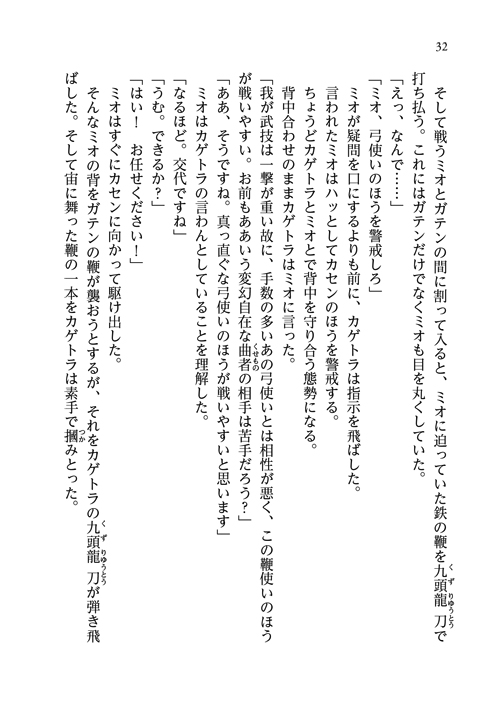 32
そして戦うミオとガテンの間に割って入ると、ミオに迫っていた鉄の鞭を九頭龍刀で
打ち払う。これにはガテンだけでなくミオも目を丸くしていた。
「えっ、なんで……」
「ミオ、弓使いのほうを警戒しろ」
ミオが疑問を口にするよりも前に、カゲトラは指示を飛ばした。
言われたミオはハッとしてカセンのほうを警戒する。
ちょうどカゲトラとミオとで背中を守り合う態勢になる。
背中合わせのままカゲトラはミオに言った。
「我が武技は一撃が重い故に、手数の多いあの弓使いとは相性が悪く、この鞭使いのほう
が戦いやすい。お前もああいう変幻自在な曲者の相手は苦手だろう？」
「ああ、そうですね。真っ直ぐな弓使いのほうが戦いやすいと思います」
ミオはカゲトラの言わんとしていることを理解した。
「なるほど。交代ですね」
「うむ。できるか？」
「はい！　お任せください！」
ミオはすぐにカセンに向かって駆け出した。
そんなミオの背をガテンの鞭が襲おうとするが、それをカゲトラの九頭龍刀が弾き飛
ばした。そして宙に舞った鞭の一本をカゲトラは素手で摑みとった。